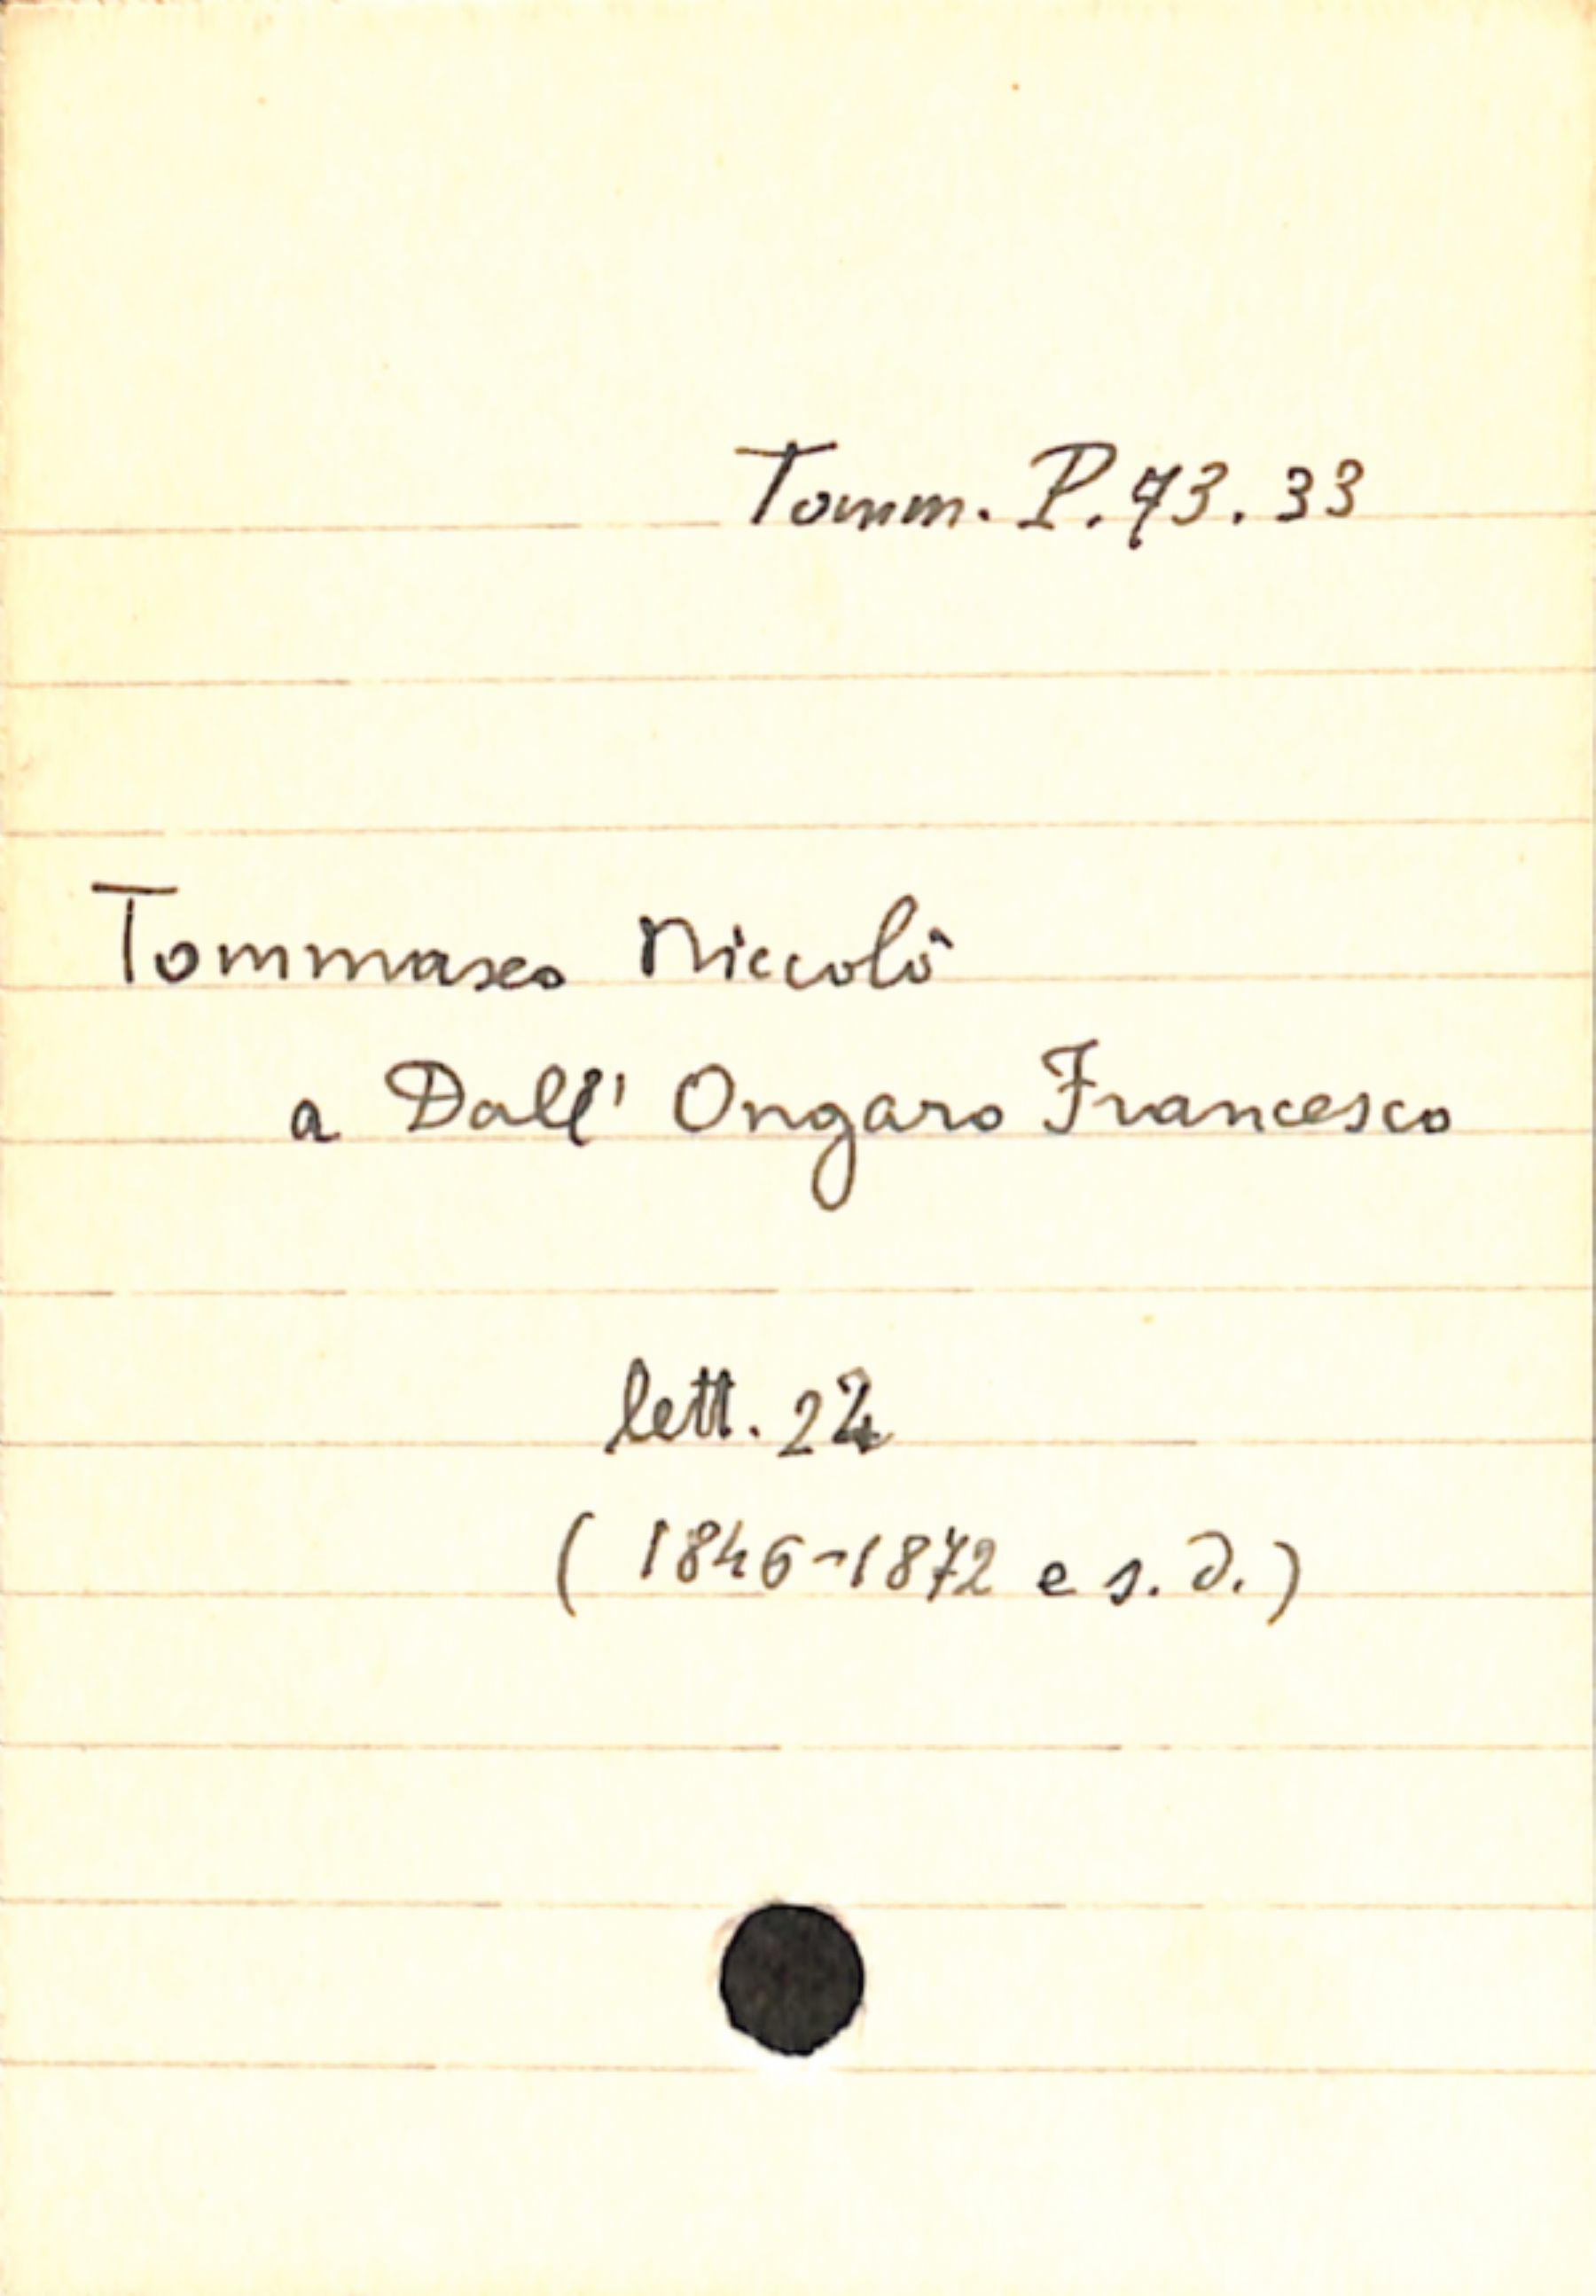 Tomm. P. 73. 33
Tommaseo Niccolò
a Dall' Ongaro Francesco
lett. 24
(1846-1872 e s. d.)